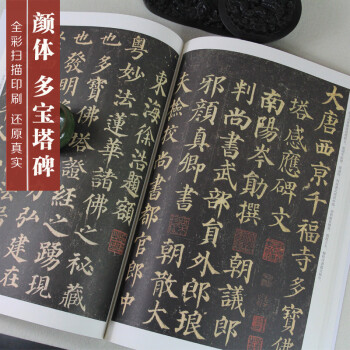 颜体 多宝塔碑
全彩扫描印刷 还原真实
大唐西京千福寺多寶佛
塔感應碑文
南陽岑勛撰 朝議郎
判尚書武部員外郎琅
邪顏真卿書 朝散大
夫撿校尚書都官郎中
東海徐浩題額
粵妙法蓮華諸佛之秘藏
也多寶佛塔證經之踴現
也發明
弘建在